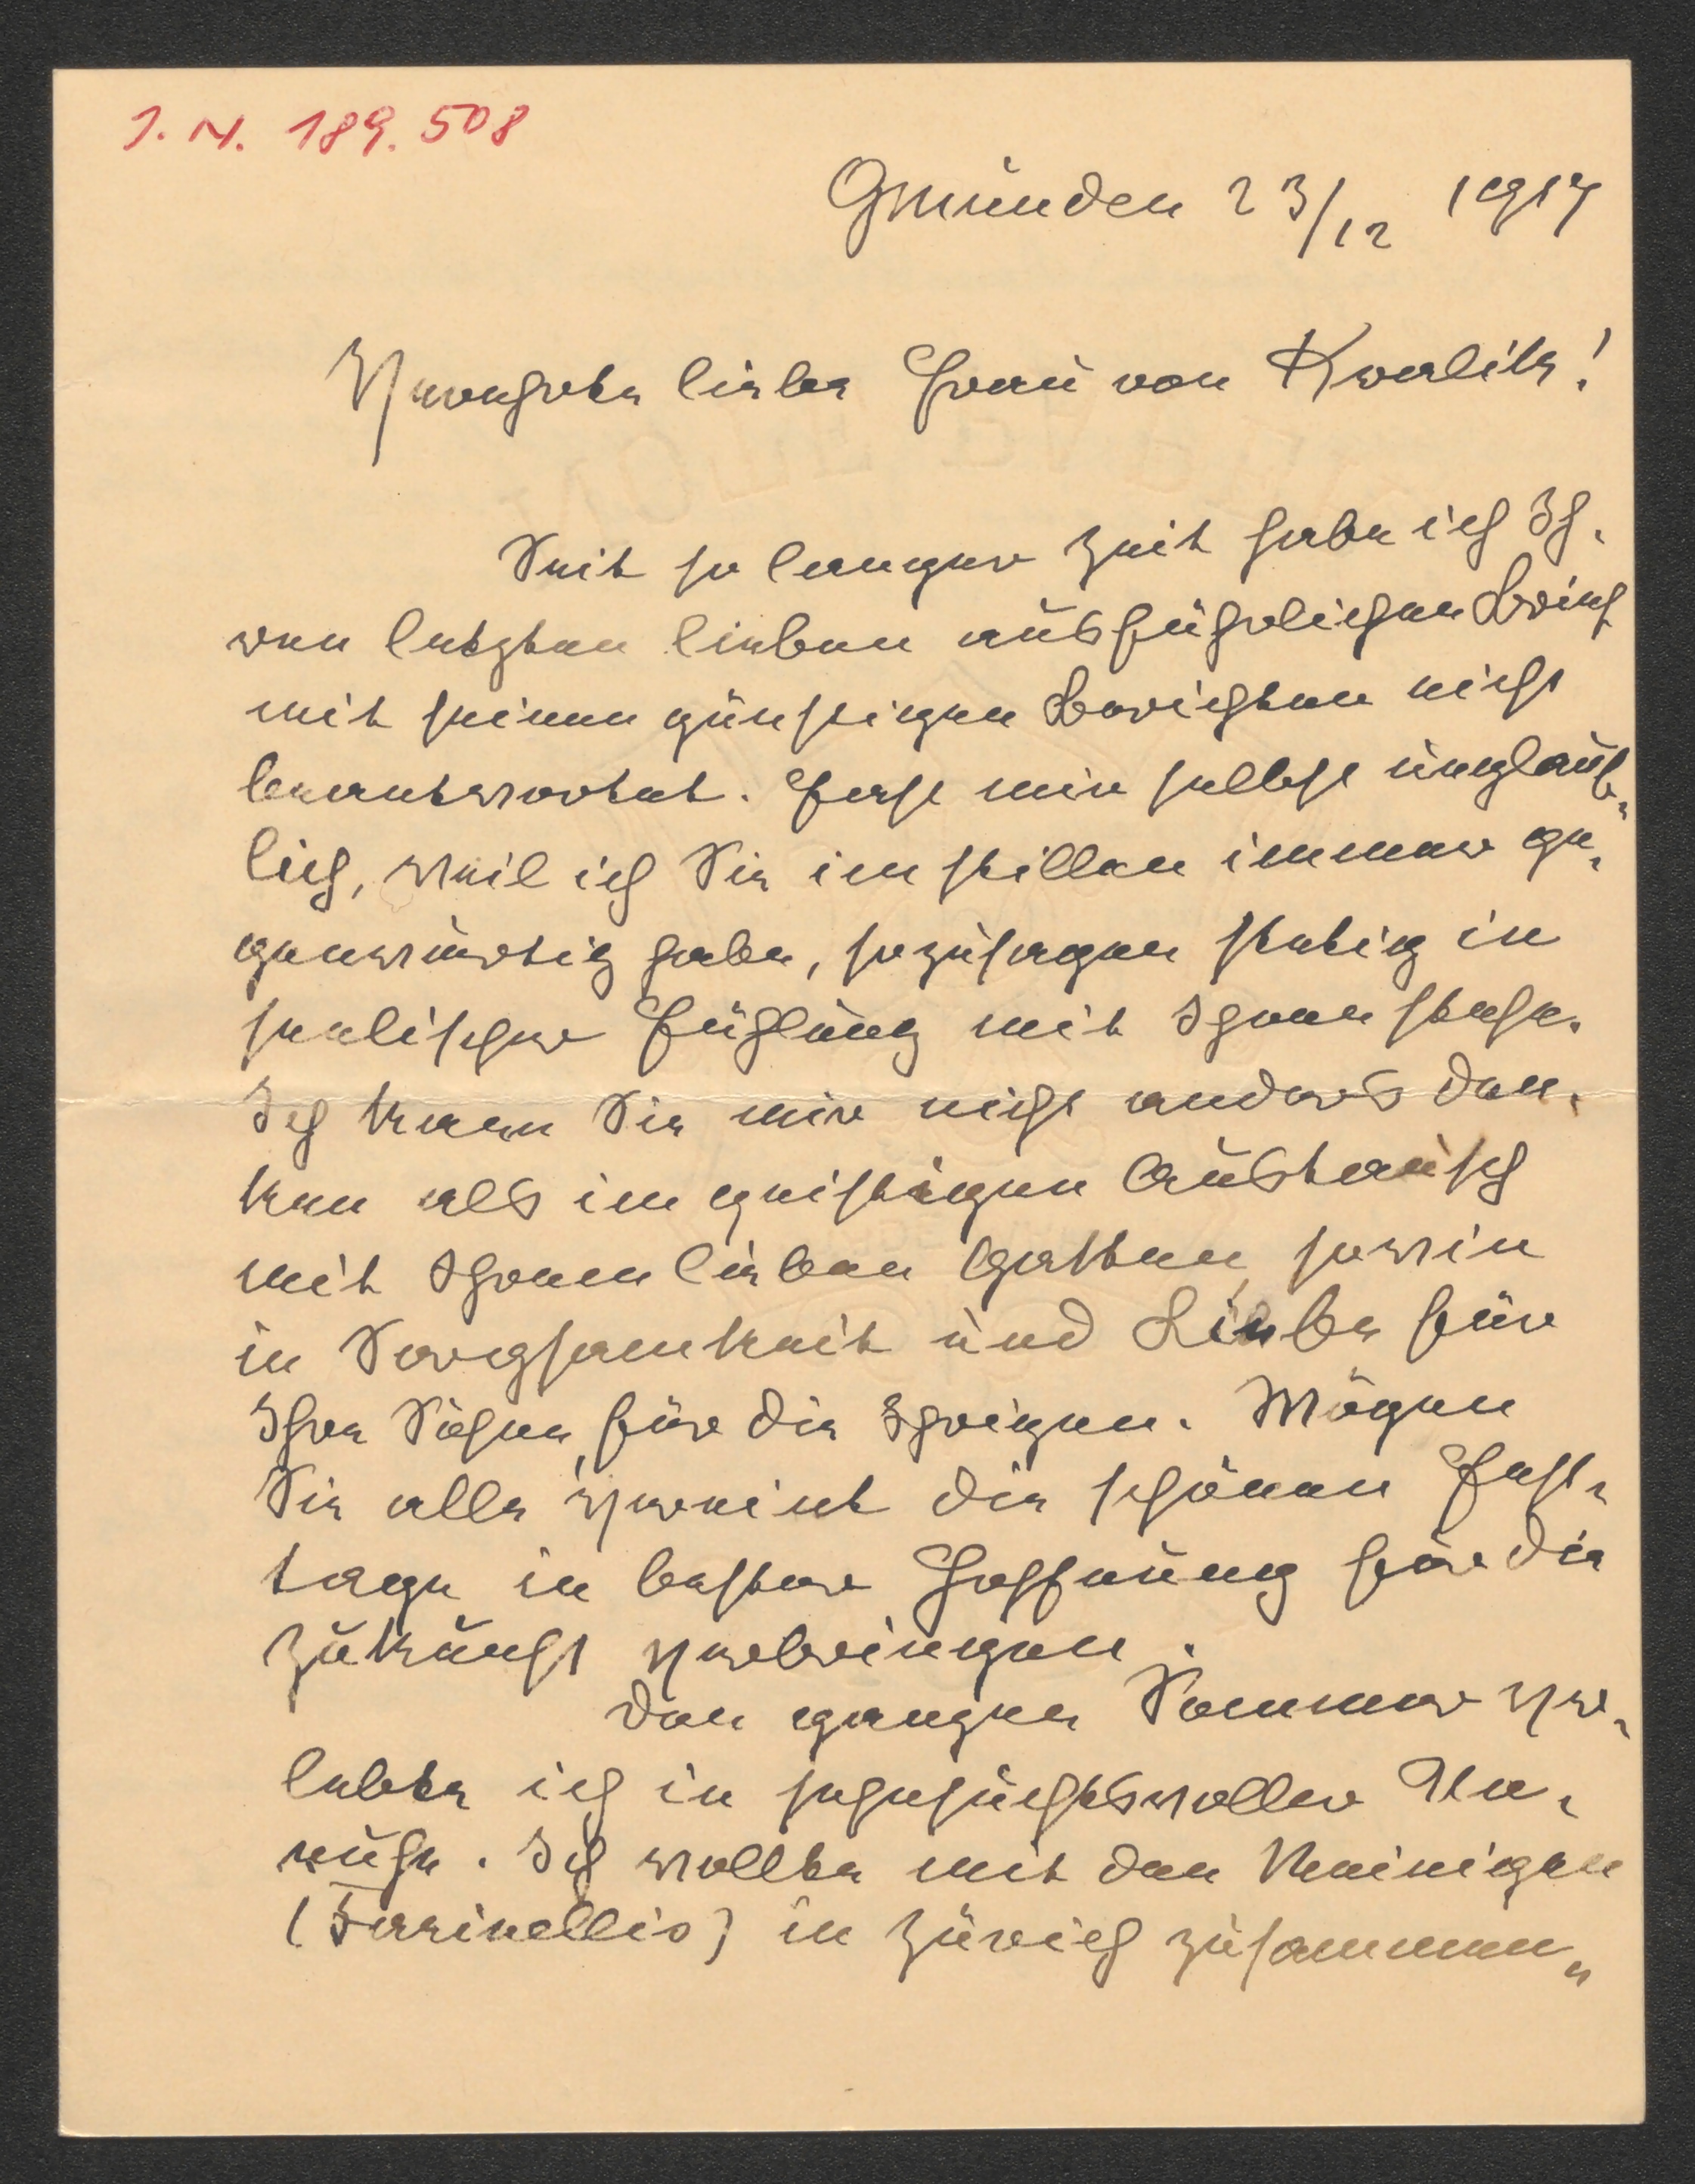 I. N. 189.508
Gmunden 23/12 1917
Verehrte liebe Frau von Kralik!
Seit so langer Zeit habe ich Ih-
ren letzten lieben ausführlichen Brief
mit seinen günstigen Berichten nicht
beantwortet. Fast mir selbst unglaub-
lich, weil ich Sie im stillen immer ge-
genwärtig habe, sozusagen stetig in
seelischer Fühlung mit Ihnen stehe.
Ich kann Sie mir nicht anders den-
ken als im geistigen Austausch
mit Ihrem lieben Gatten, sowie
in Sorgsamkeit und Liebe für
Ihre Söhne, für die Ihrigen. Mögen
Sie alle vereint die schönen Fest-
tage in bester Hoffnung für die
Zukunft verbringen.
Den ganzen Sommer ver-
lebte ich in sehnsuchtsvoller Un-
ruhe. Ich wollte mit den Meinigen
(Farinellis) in Zürich zusammen-